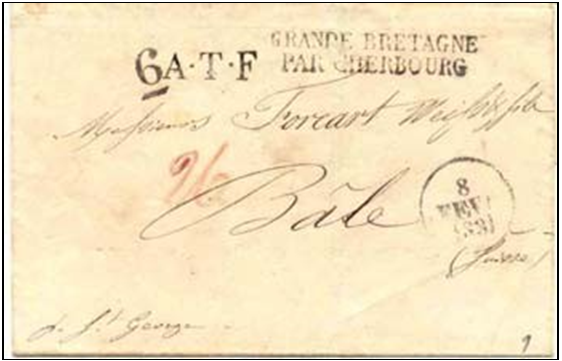 GRANDE BRETAGNE
6 A·T·F PAR CHERBOURG
Messieurs Forcart Weiss & fils
2/6
Bâle
8
FEV
(Suisse)
p. St George
9